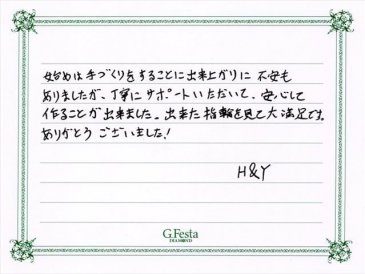 始めは手づくりをすることに出来上がりに 不安も
ありましたが、丁寧にサポートいただいて、安心して
作ることが出来ました。出来た指輪を見て大満足です。
ありがとう ございました!
H&Y
G.Festa
DIAMOND